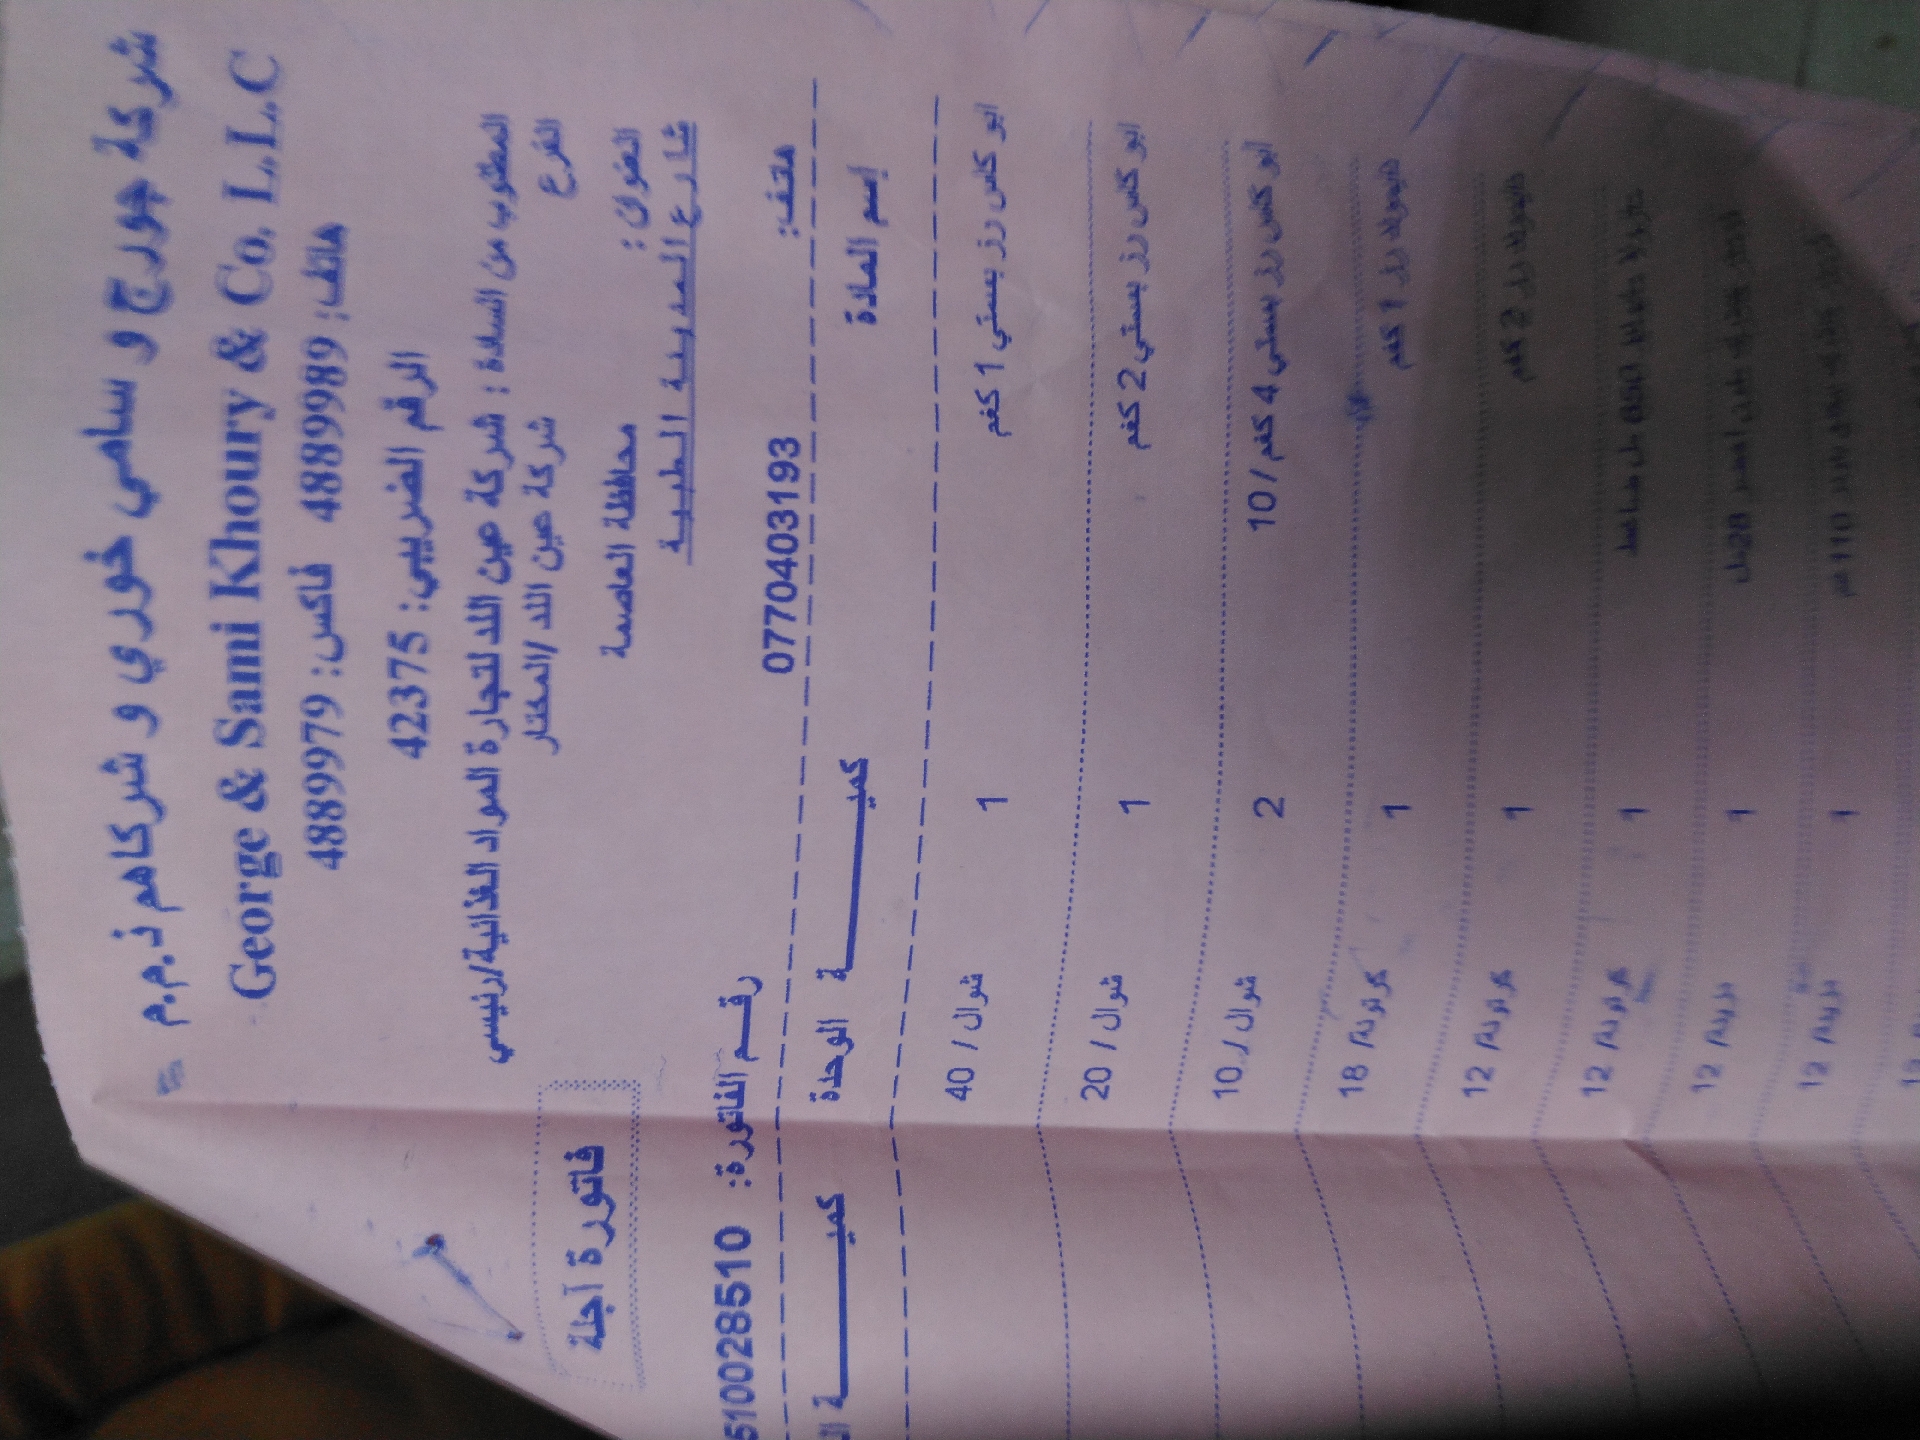 شركة جورج و سامي خوري و شركاهم ذ.م.م
George & Sami Khoury & Co. L.L.C
هاتف: 4889989 فاكس: 4889979
الرقم الضريبي: 42375
المطلوب من السادة : شركة عين اللد لتجارة المواد الغذائية/رئيسي
الفرع شركة عين اللد /المختار
فاتورة آجلة
العنوان : محافظة العاصمة
شارع المدينة الطبية
هاتف: 0770403193
رقم الفاتورة: 5100028510
إسم المادة كميـــة الوحدة كميـــة
ابو كاس رز بسمتي 1 كغم 1 شوال / 40
ابو كاس رز بسمتي 2 كغم 1 شوال / 20
ابو كاس رز بسمتي 4 كغم / 10 2 شوال / 10
رز 1 كغم 1 كرتونة/ 18
رز 2 كغم 1 كرتونة/ 12
650 مل 1 كرتونة/ 12
28 1 12
110 1 12